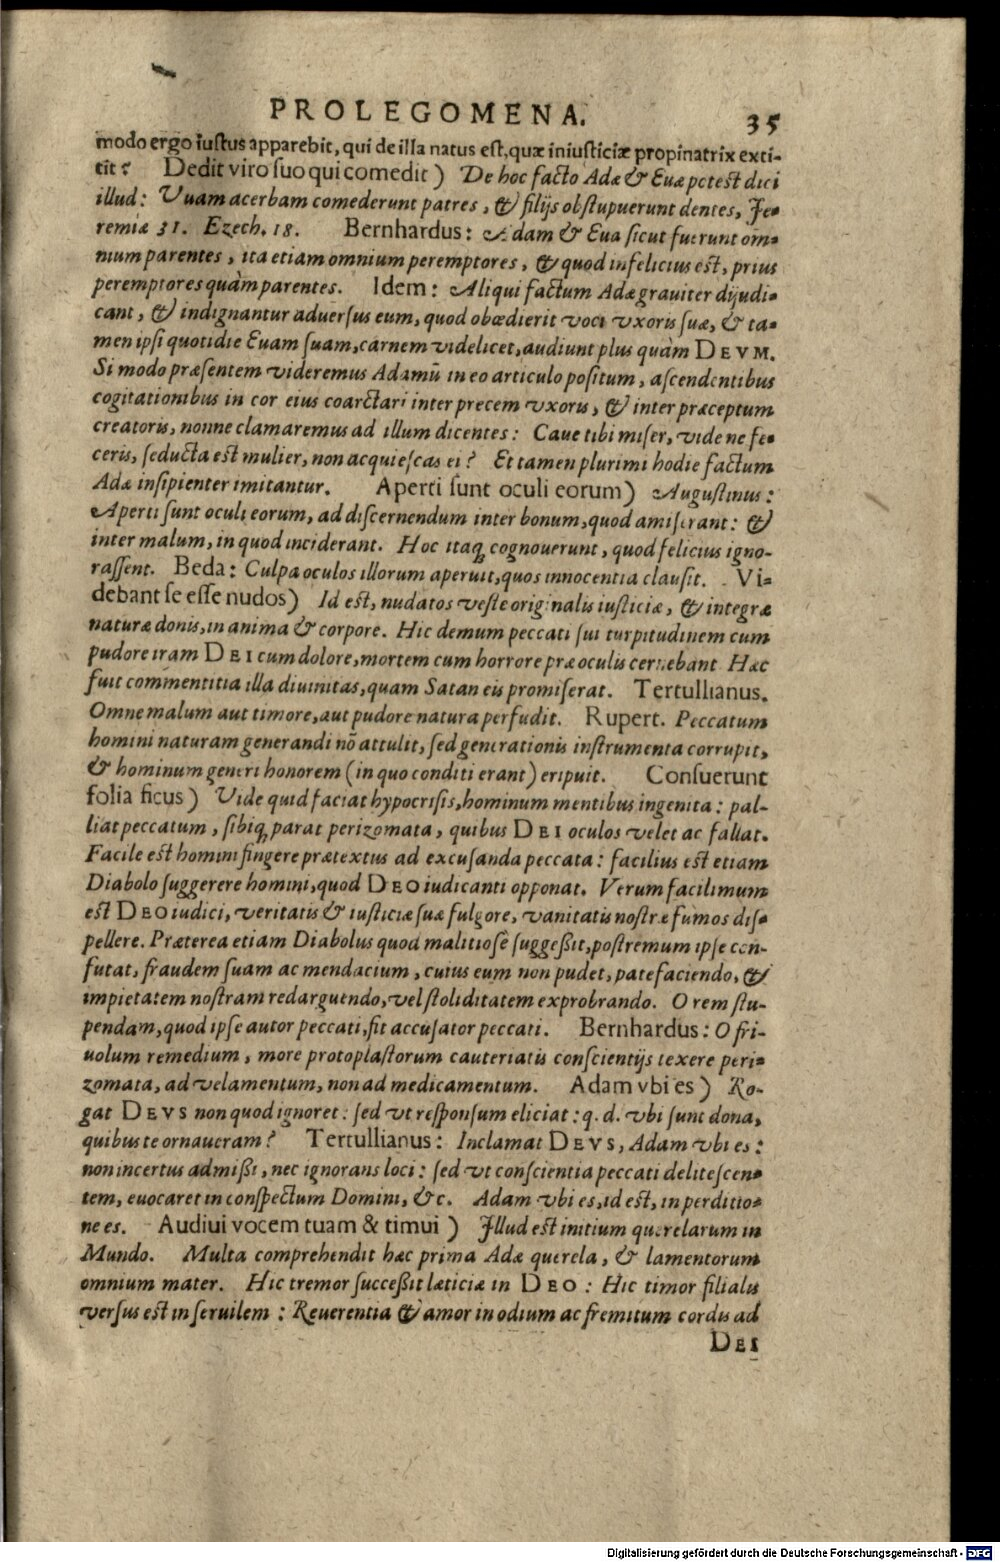 PROLEGOMENA. 35
modo ergo iustus apparebit, qui de illa natus est, quæ iniusticiæ propinatrix exti-
tit? Dedit viro suo qui comedit) De hoc facto Adæ & Euæ potest dici
illud: Vuam acerbam comederunt patres, & filijs obstupuerunt dentes, Je-
remiæ 31. Ezech. 18. Bernhardus: Adam & Eua sicut fuerunt om-
nium parentes, ita etiam omnium peremptores, & quod infelicius est, prius
peremptores quàm parentes. Idem: Aliqui factum Adæ grauiter dijudi-
cant, & indignantur aduersus eum, quod obœdierit voci vxoris suæ, & ta-
men ipsi quotidie Euam suam, carnem videlicet, audiunt plus quàm DEVM.
Si modo præsentem videremus Adamū in eo articulo positum, ascendentibus
cogitationibus in cor eius coarctari inter precem vxoris, & inter præceptum
creatoris, nonne clamaremus ad illum dicentes: Caue tibi miser, vide ne fe-
ceris, seducta est mulier, non acquiescas ei? Et tamen plurimi hodie factum
Adæ insipienter imitantur. Aperti sunt oculi eorum) Augustinus:
Aperti sunt oculi eorum, ad discernendum inter bonum, quod amiserant: &
inter malum, in quod inciderant. Hoc itaq; cognouerunt, quod felicius igno-
rassent. Beda: Culpa oculos illorum aperuit, quos innocentia clausit. Vi-
debant se esse nudos) Id est, nudatos veste originalis iusticiæ, & integræ
naturæ donis, in anima & corpore. Hic demum peccati sui turpitudinem cum
pudore iram DEI cum dolore, mortem cum horrore præ oculis cernebant Hæc
fuit commentitia illa diuinitas, quam Satan eis promiserat. Tertullianus.
Omne malum aut timore, aut pudore natura perfudit. Rupert. Peccatum
homini naturam generandi nō attulit, sed generationis instrumenta corrupit,
& hominum generi honorem (in quo conditi erant) eripuit. Consuerunt
folia ficus) Vide quid faciat hypocrisis, hominum mentibus ingenita: pal-
liat peccatum, sibiq; parat perizomata, quibus DEI oculos velet ac fallat.
Facile est homini fingere prætextus ad excusanda peccata: facilius est etiam
Diabolo suggerere homini, quod DEO iudicanti opponat. Verum facilimum
est DEO iudici, veritatis & iusticiæ suæ fulgore, vanitatis nostræ fumos dis-
pellere. Præterea etiam Diabolus quod malitiosè suggeßit, postremum ipse con-
futat, fraudem suam ac mendacium, cuius eum non pudet, patefaciendo, &
impietatem nostram redarguendo, vel stoliditatem exprobrando. O rem stu-
pendam, quod ipse autor peccati, fit accusator peccati. Bernhardus: O fri-
uolum remedium, more protoplastorum cauteriatis conscientijs texere peri-
zomata, ad velamentum, non ad medicamentum. Adam vbi es) Ro-
gat DEVS non quod ignoret: sed vt responsum eliciat: q. d. vbi sunt dona,
quibus te ornaueram? Tertullianus: Inclamat DEVS, Adam vbi es:
non incertus admißi, nec ignorans loci: sed vt conscientia peccati delitescen-
tem, euocaret in conspectum Domini, &c. Adam vbi es, id est, in perditio-
ne es. Audiui vocem tuam & timui) Illud est initium querelarum in
Mundo. Multa comprehendit hæc prima Adæ querela, & lamentorum
omnium mater. Hic tremor succeßit læticiæ in DEO: Hic timor filialis
versus est in seruilem: Reuerentia & amor in odium ac fremitum cordis ad
DEI
Digitalisierung gefördert durch die Deutsche Forschungsgemeinschaft - DFG